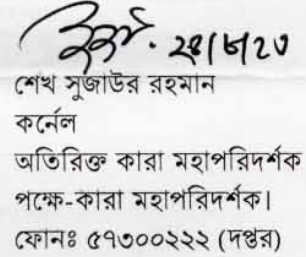 ২৪/৮/২৩
শেখ সুজাউর রহমান
কর্নেল
অতিরিক্ত কারা মহাপরিদর্শক
পক্ষে-কারা মহাপরিদর্শক।
ফোনঃ ৫৭৩০০২২২ (দপ্তর)